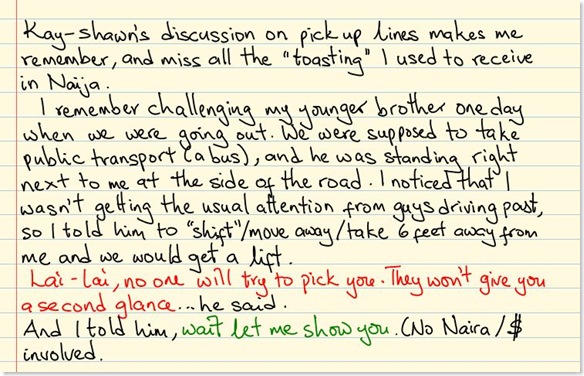 Kay-shawn's discussion on pick up lines makes me
remember, and miss all the "toasting" I used to receive
in Naija.
I remember challenging my younger brother one day
when we were going out. We were supposed to take
public transport (a bus), and he was standing right
next to me at the side of the road. I noticed that I
wasn't getting the usual attention from guys driving past,
so I told him to "shift"/move away/take 6 feet away from
me and we would get a lift.
Lai-lai, no one will try to pick you. They won't give you
a second glance...he said.
And I told him, wait let me show you. (No Naira/$
involved.